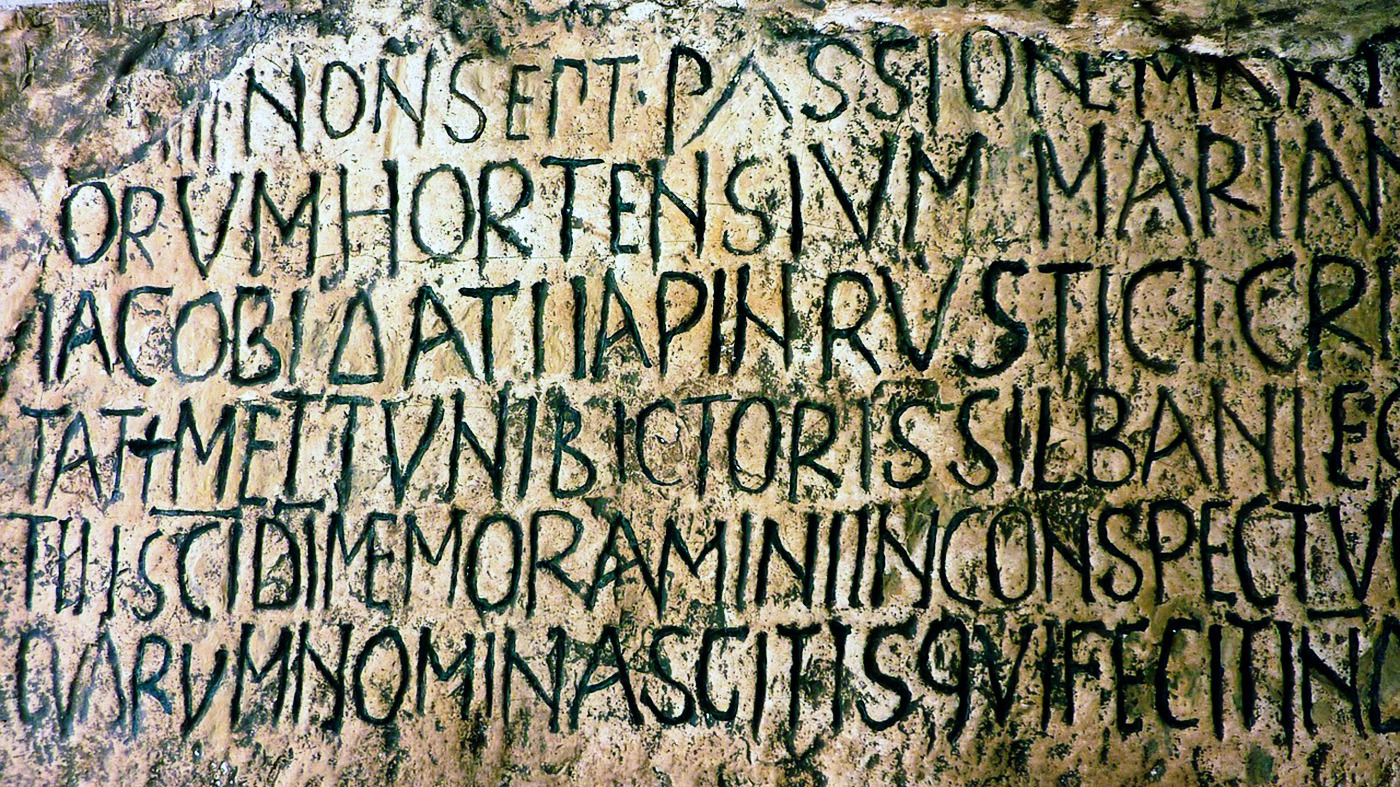 IIII NON SEPT· PASSIONE MART
ORVM HORTENSIVM MARIAN
I IACOBI DATI IAPIN RVSTICI CRI
TATI + METTVNI BICTORIS SILBANI EG
TII SCI DI MEMORAMINI IN CONSPECTV
QVARVM NOMINA SCITIS QVI FECIT IN